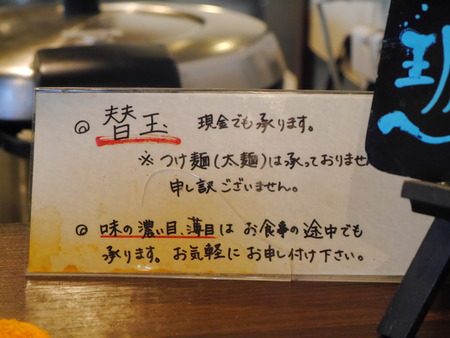 ◎ 替玉 現金でも承ります。
※ つけ麺(太麺)は承っておりませ
申し訳ございません。
◎ 味の濃い目、薄目は お食事の途中でも
承ります。お気軽に お申し付け下さい。